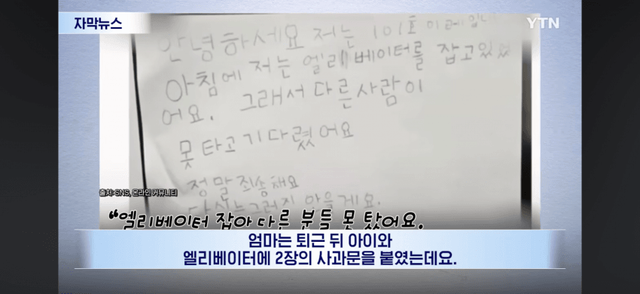 자막뉴스
YTN
안녕하세요 저는 101호
아침에 저는 엘리베이터를 잡고있었
어요. 그래서 다른사람이
못 타고 기다렸어요
정말 죄송해요
출처: SNS, 온라인 커뮤니티
"엘리베이터 잡아 다른 분들 못 탔어요.
엄마는 퇴근 뒤 아이와
엘리베이터에 2장의 사과문을 붙였는데요.